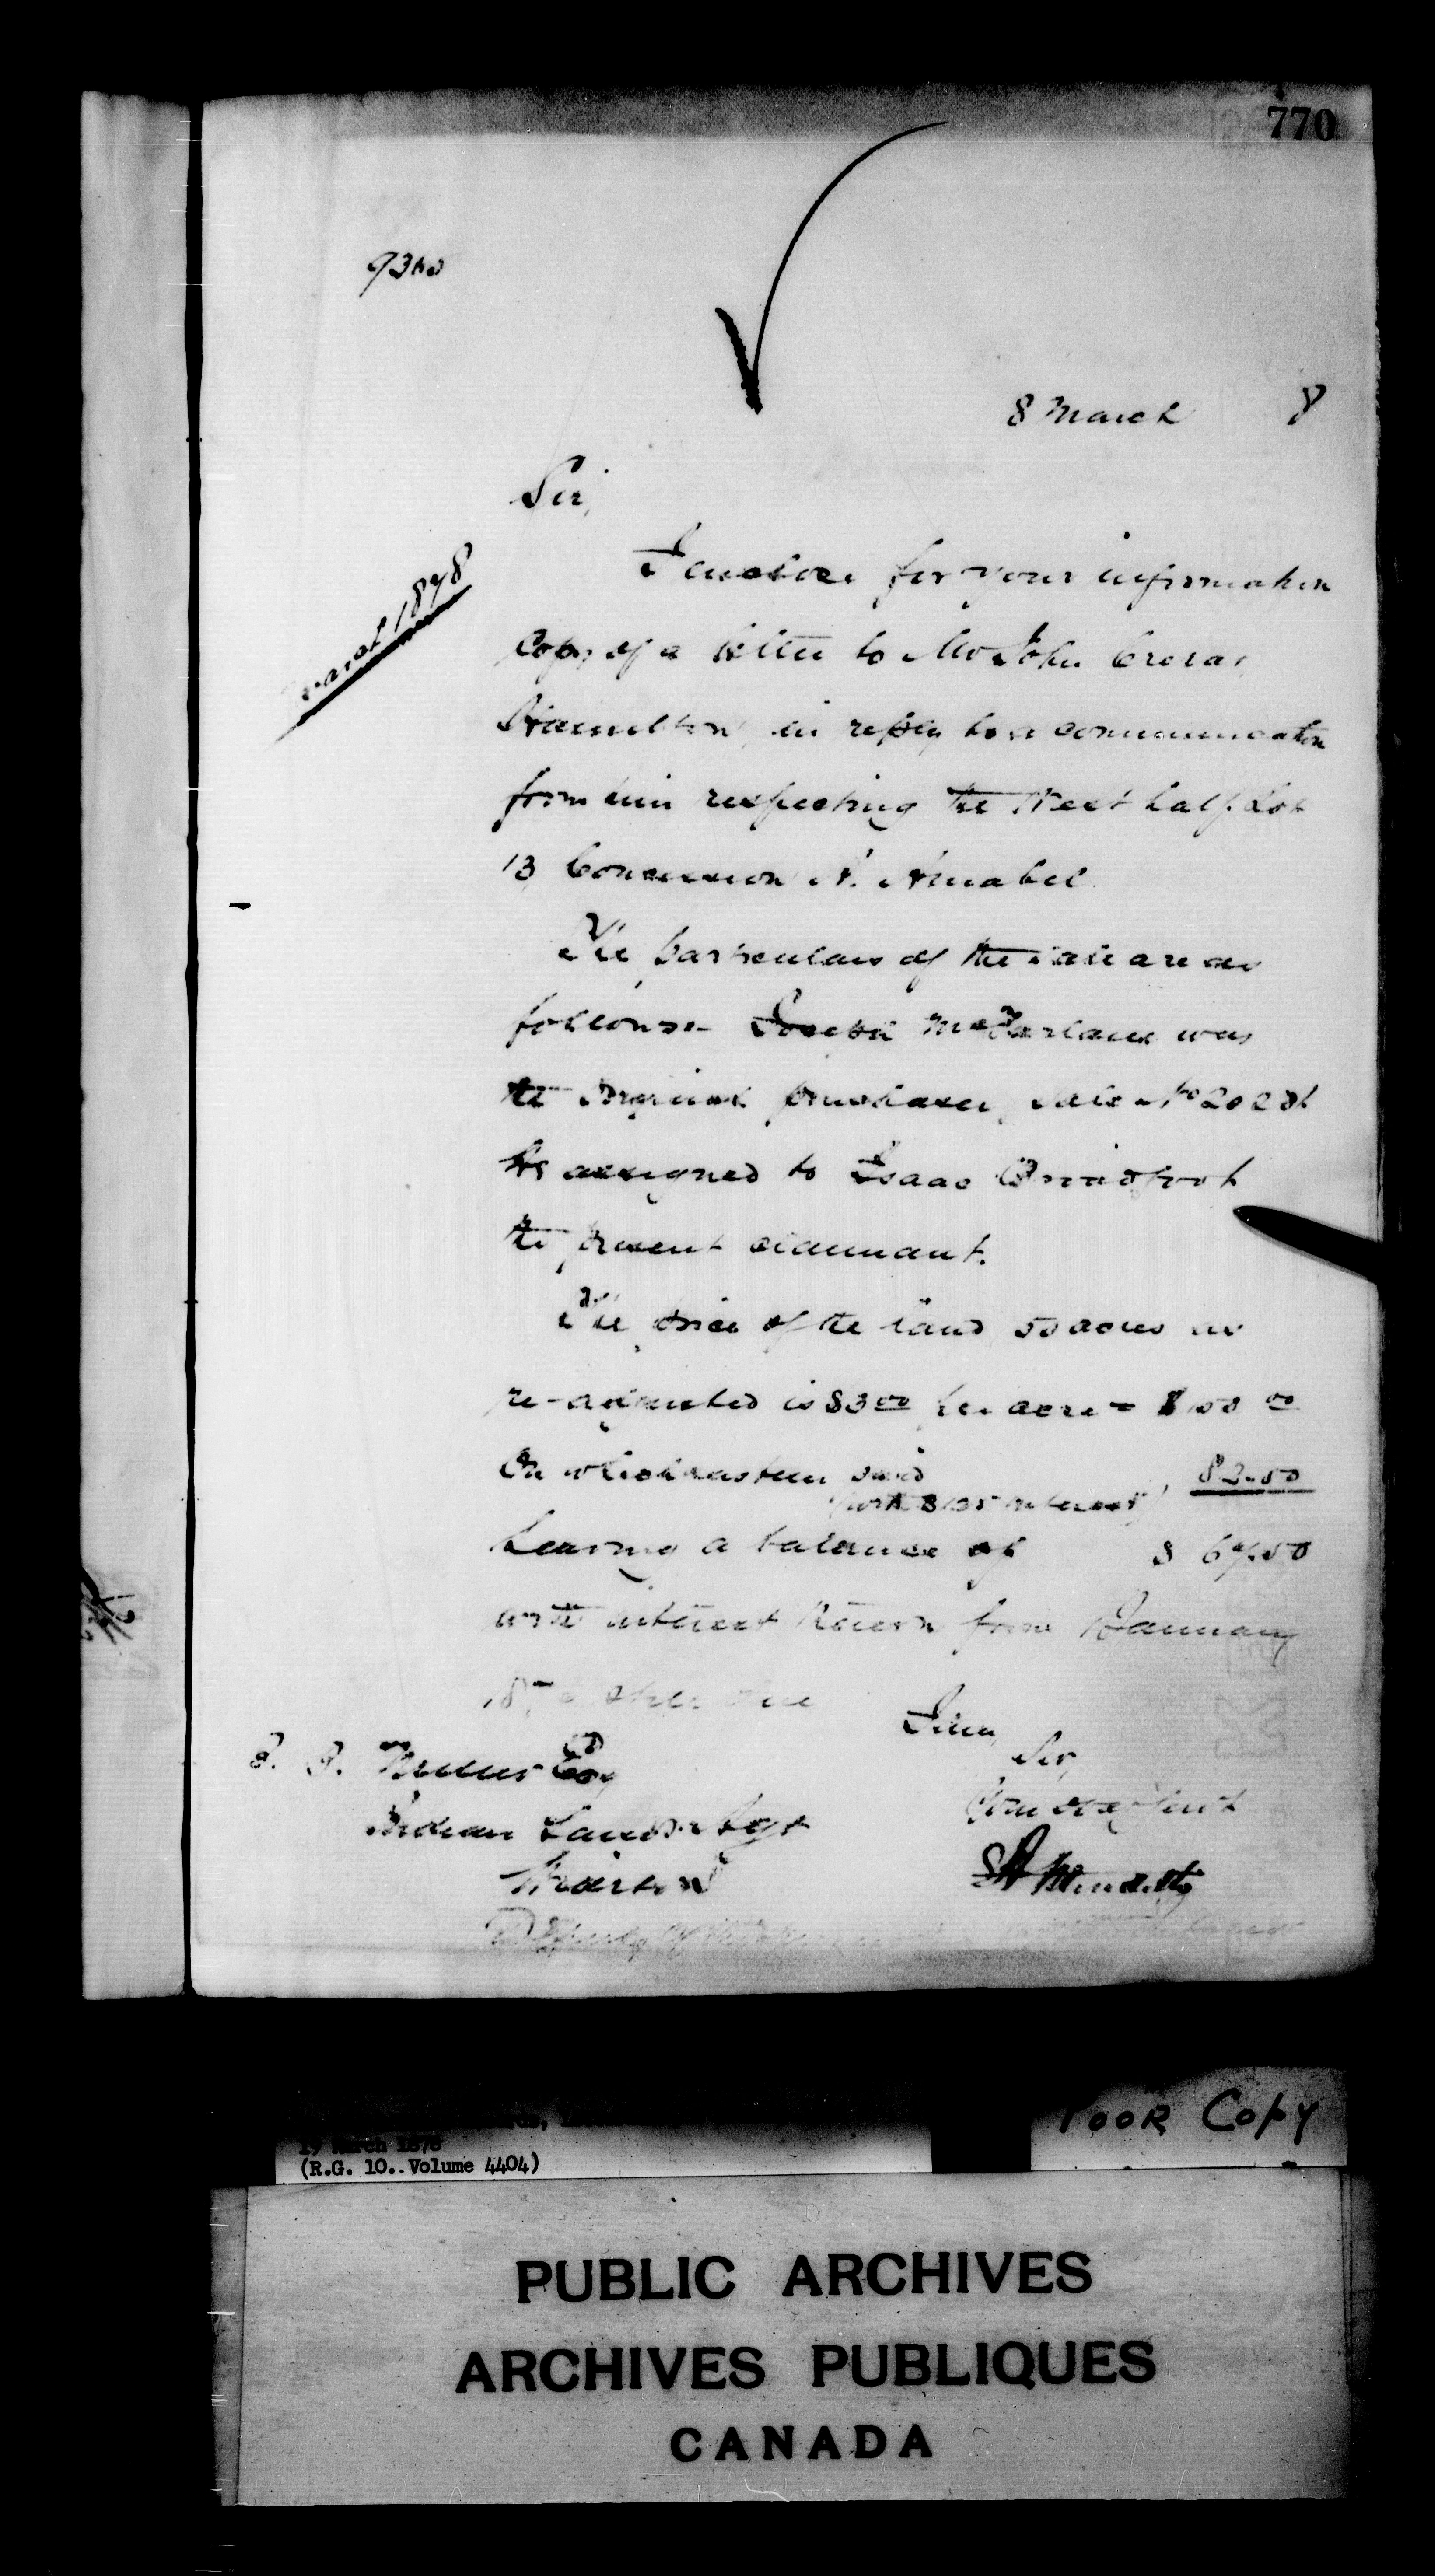 770
8 March 8
March 1878
Sir,
I enclose for your information
Copy of a letter to Mr John Crerar,
Hamilton, in reply to a communication
from him respecting the West half Lot
13 Concession Amabel
The particulars of the sale are as
follows:- Joseph McFarlane was
the original purchaser, sale No
He assigned to Isaac
the present claimant.
The price of the land 50 acres as
re-adjusted is $3 00 per acre =
On which has been paid 82.50
interest)
Leaving a balance of $ 67.50
with interest thereon from January
I am,
Sir,
Your obedient
Esq
Indian Land Agt
Wiarton
Poor Copy
19 March 1878
(R.G. 10.. Volume 4404)
PUBLIC ARCHIVES
ARCHIVES PUBLIQUES
CANADA